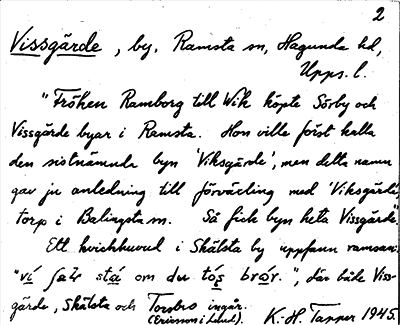 2
Vissgärde, by, Ramsta sn, Hagunda hd,
Upps. l.
"Fröken Ramborg till Wik köpte Sörby och
Vissgärde byar i Ramsta. Hon ville först kalla
den sistnämnda byn 'Viksgärde', men detta namn
gav ju anledning till förväxling med 'Viksgärde'
torp i Balingsta sn. Så fick byn heta Vissgärde"
Ett kvickhuvud i Skälsta by uppfann ramsan:
stá om du bror.", där både Viss-
gärde, Skälsta och Torsbro ingår.
(Ericsson i Lund.) K.-H. Tapper 1945.